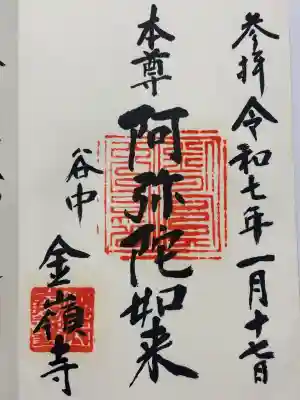 参拝 令和七年一月十七日
本尊
阿弥陀如来
谷中
金嶺寺